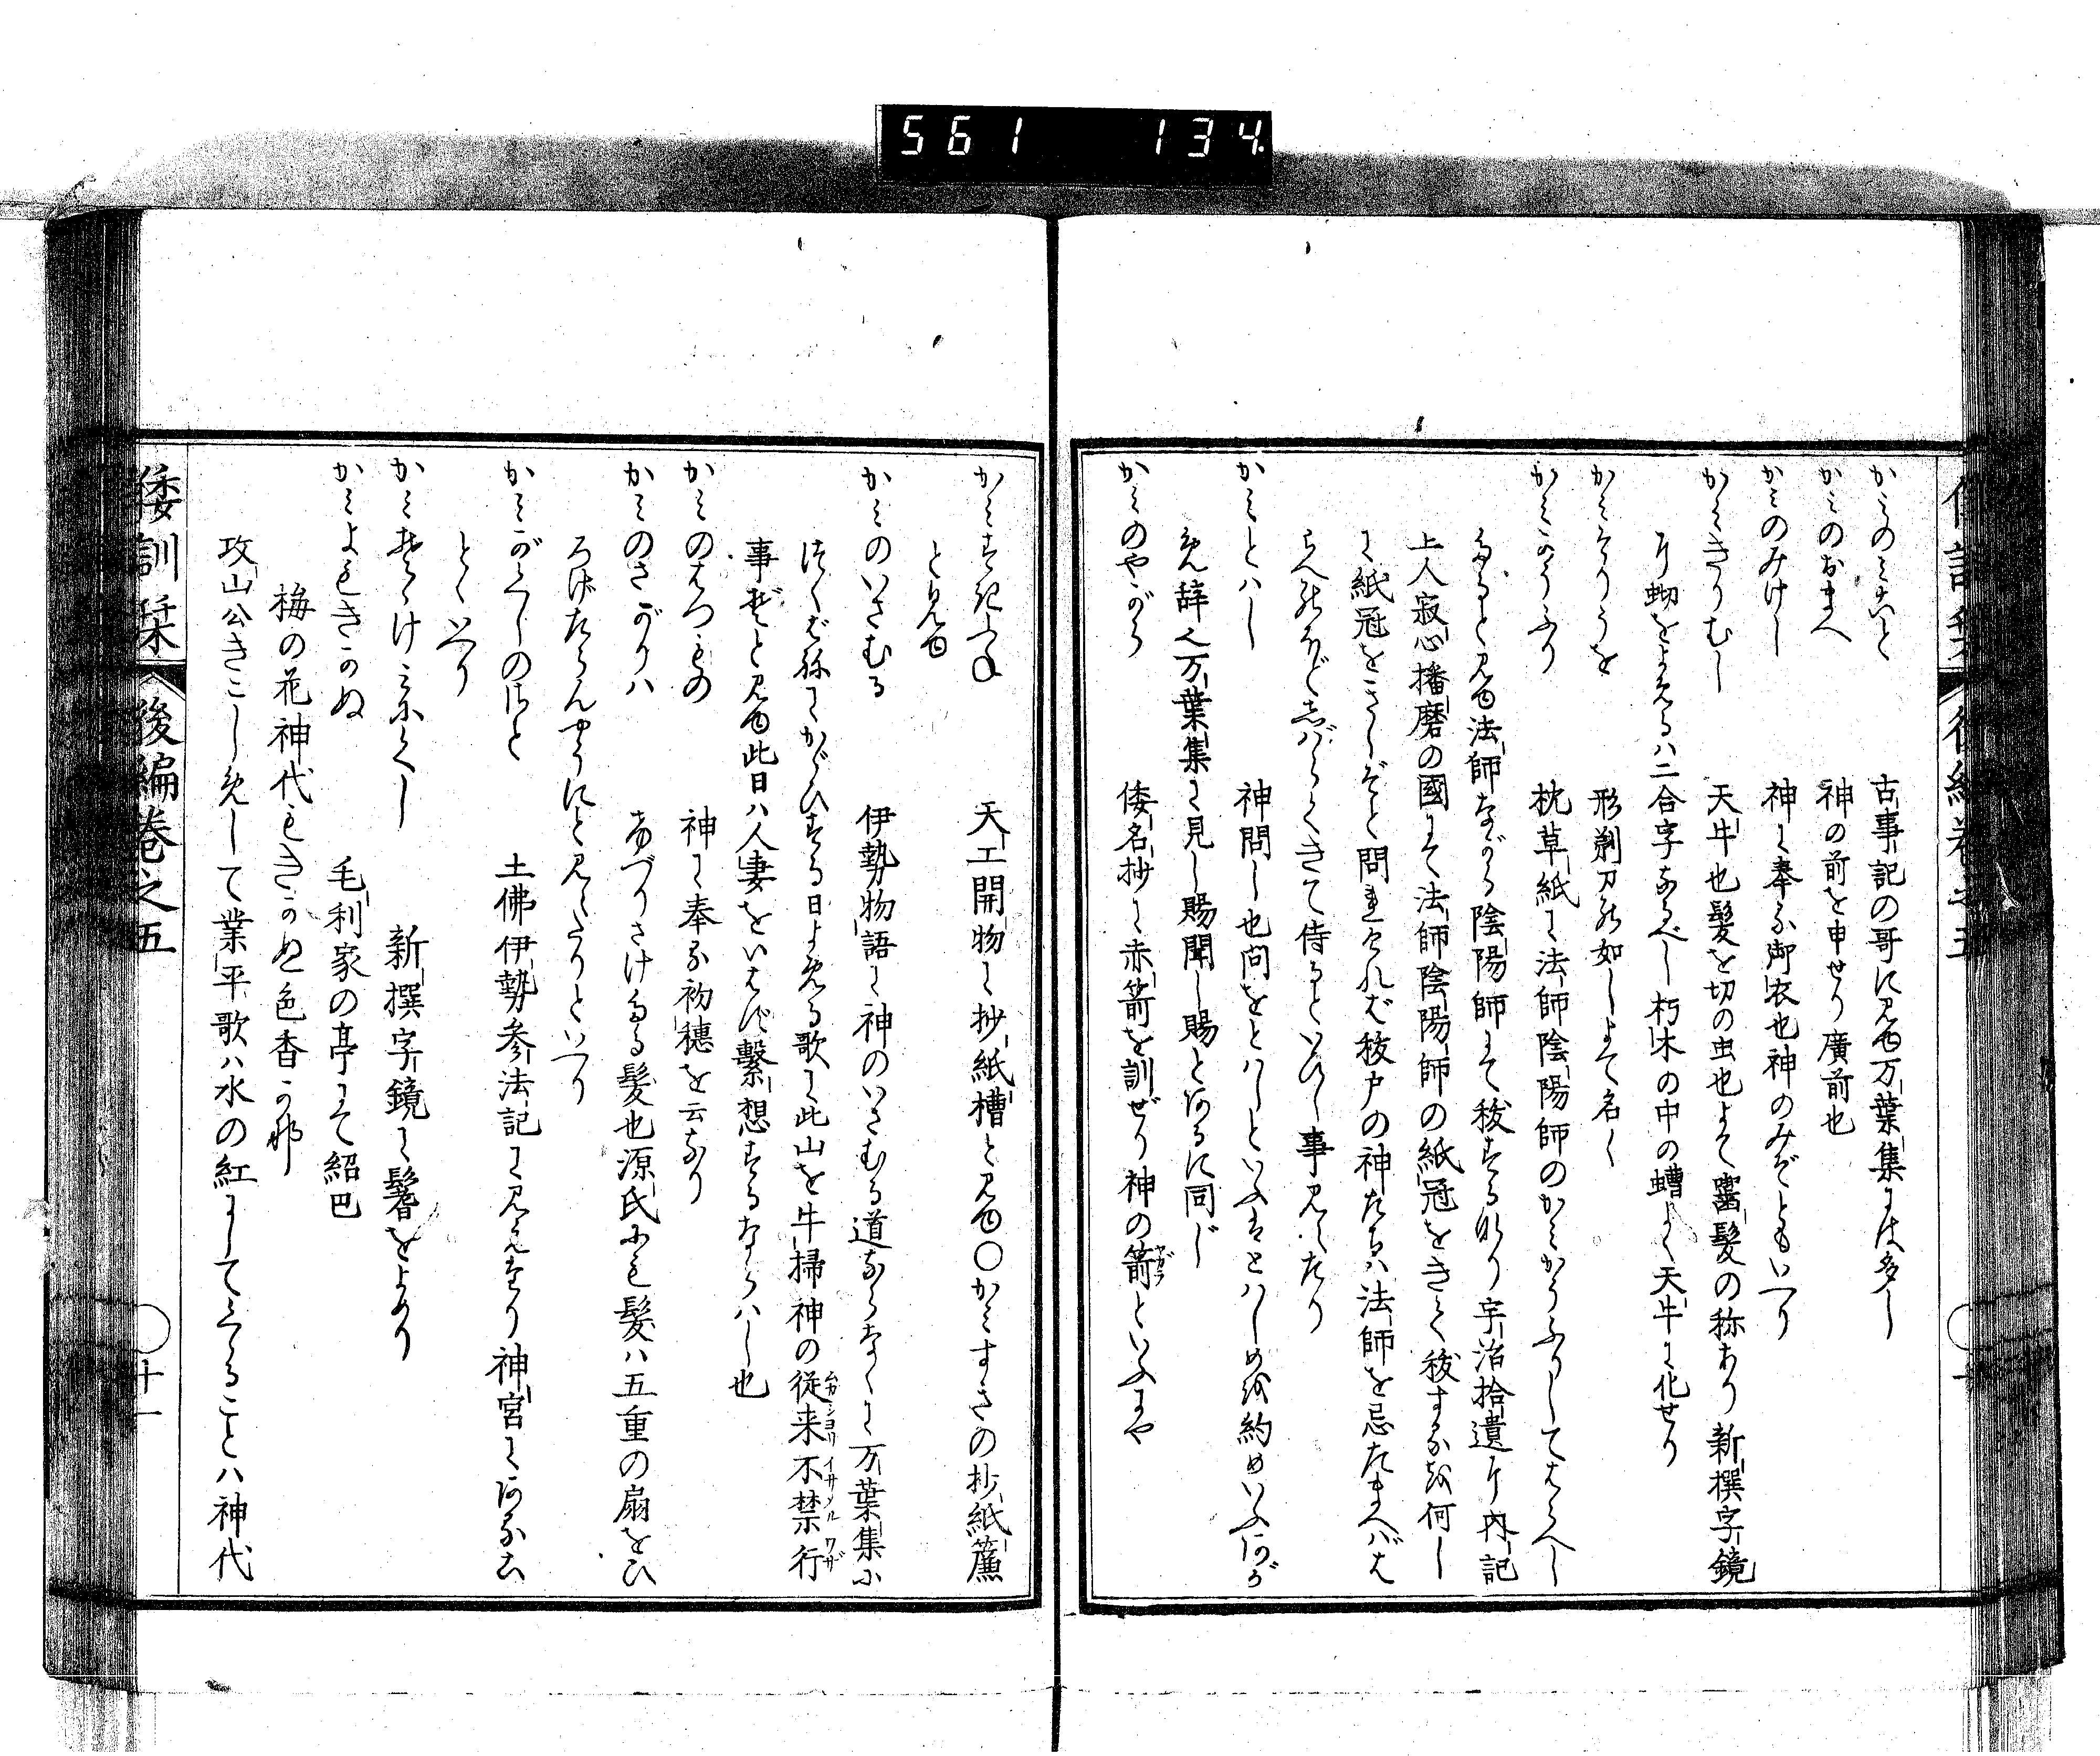 561 134
かみのみこと 古事記の哥に見ゆ万葉集には多し
かみのおまへ 神の前を申せり廣前也
かみのみけし 神に奉る御衣也神のみぞともいへり
かみきりむし 天牛也髪を切の虫也よて齧髪の称あり新撰字鏡
に蚴をよめるハ二合字なるべし朽木の中の蠐よく天牛に化せり
かみそりうを 形剃刀の如しよて名く
かみかうふり 枕草紙に法師陰陽師のかみかうふりしてはらへし
たるなと見ゆ法師ながら陰陽師にて祓する也宇治拾遺に内記
上人寂心播磨の國にて法師陰陽師の紙冠をきて祓するを何し
に紙冠をきしぞと問れけれバ祓戸の神たちハ法師を忌たまへバは
らへのほどしばらくきて侍るといひし事見えたり
かみとハし 神問し也問をとハしといふはとハしめを約めいふ也が
めん辞也万葉集に見し賜聞し賜とあるに同じ
かみのやがら 倭名抄に赤箭を訓ぜり神の箭といふにや
かみすきふね 天工開物に抄紙槽と見ゆ〇かみすきの抄紙簾
と見ゆ
かみのいさむる 伊勢物語に神のいさむる道ならなくに万葉集に
つくば祢にかがひする日よめる歌に此山を牛掃神の従来不禁行
事ぞと見ゆ此日ハ人妻をいはず繋想するならハし也
かみのはつもの 神に奉る初穂を云なり
かみのさがりハ なづりさけたる髪也源氏にも髪ハ五重の扇をひ
ろけたらんやうにと見えたりといへり
かみがくしのさと 土佛伊勢参法記に見えたり神宮にあるさ
とゝいへり
かみそゝけみにくし 新撰字鏡に鬠をよめり
かみよもきかぬ 毛利家の亭にて紹巴
梅の花神代もきかぬ色香かな
玖山公きこしめして業平歌ハ水の紅にしてくゝることハ神代
倭訓栞 後編巻之五 〇 十一